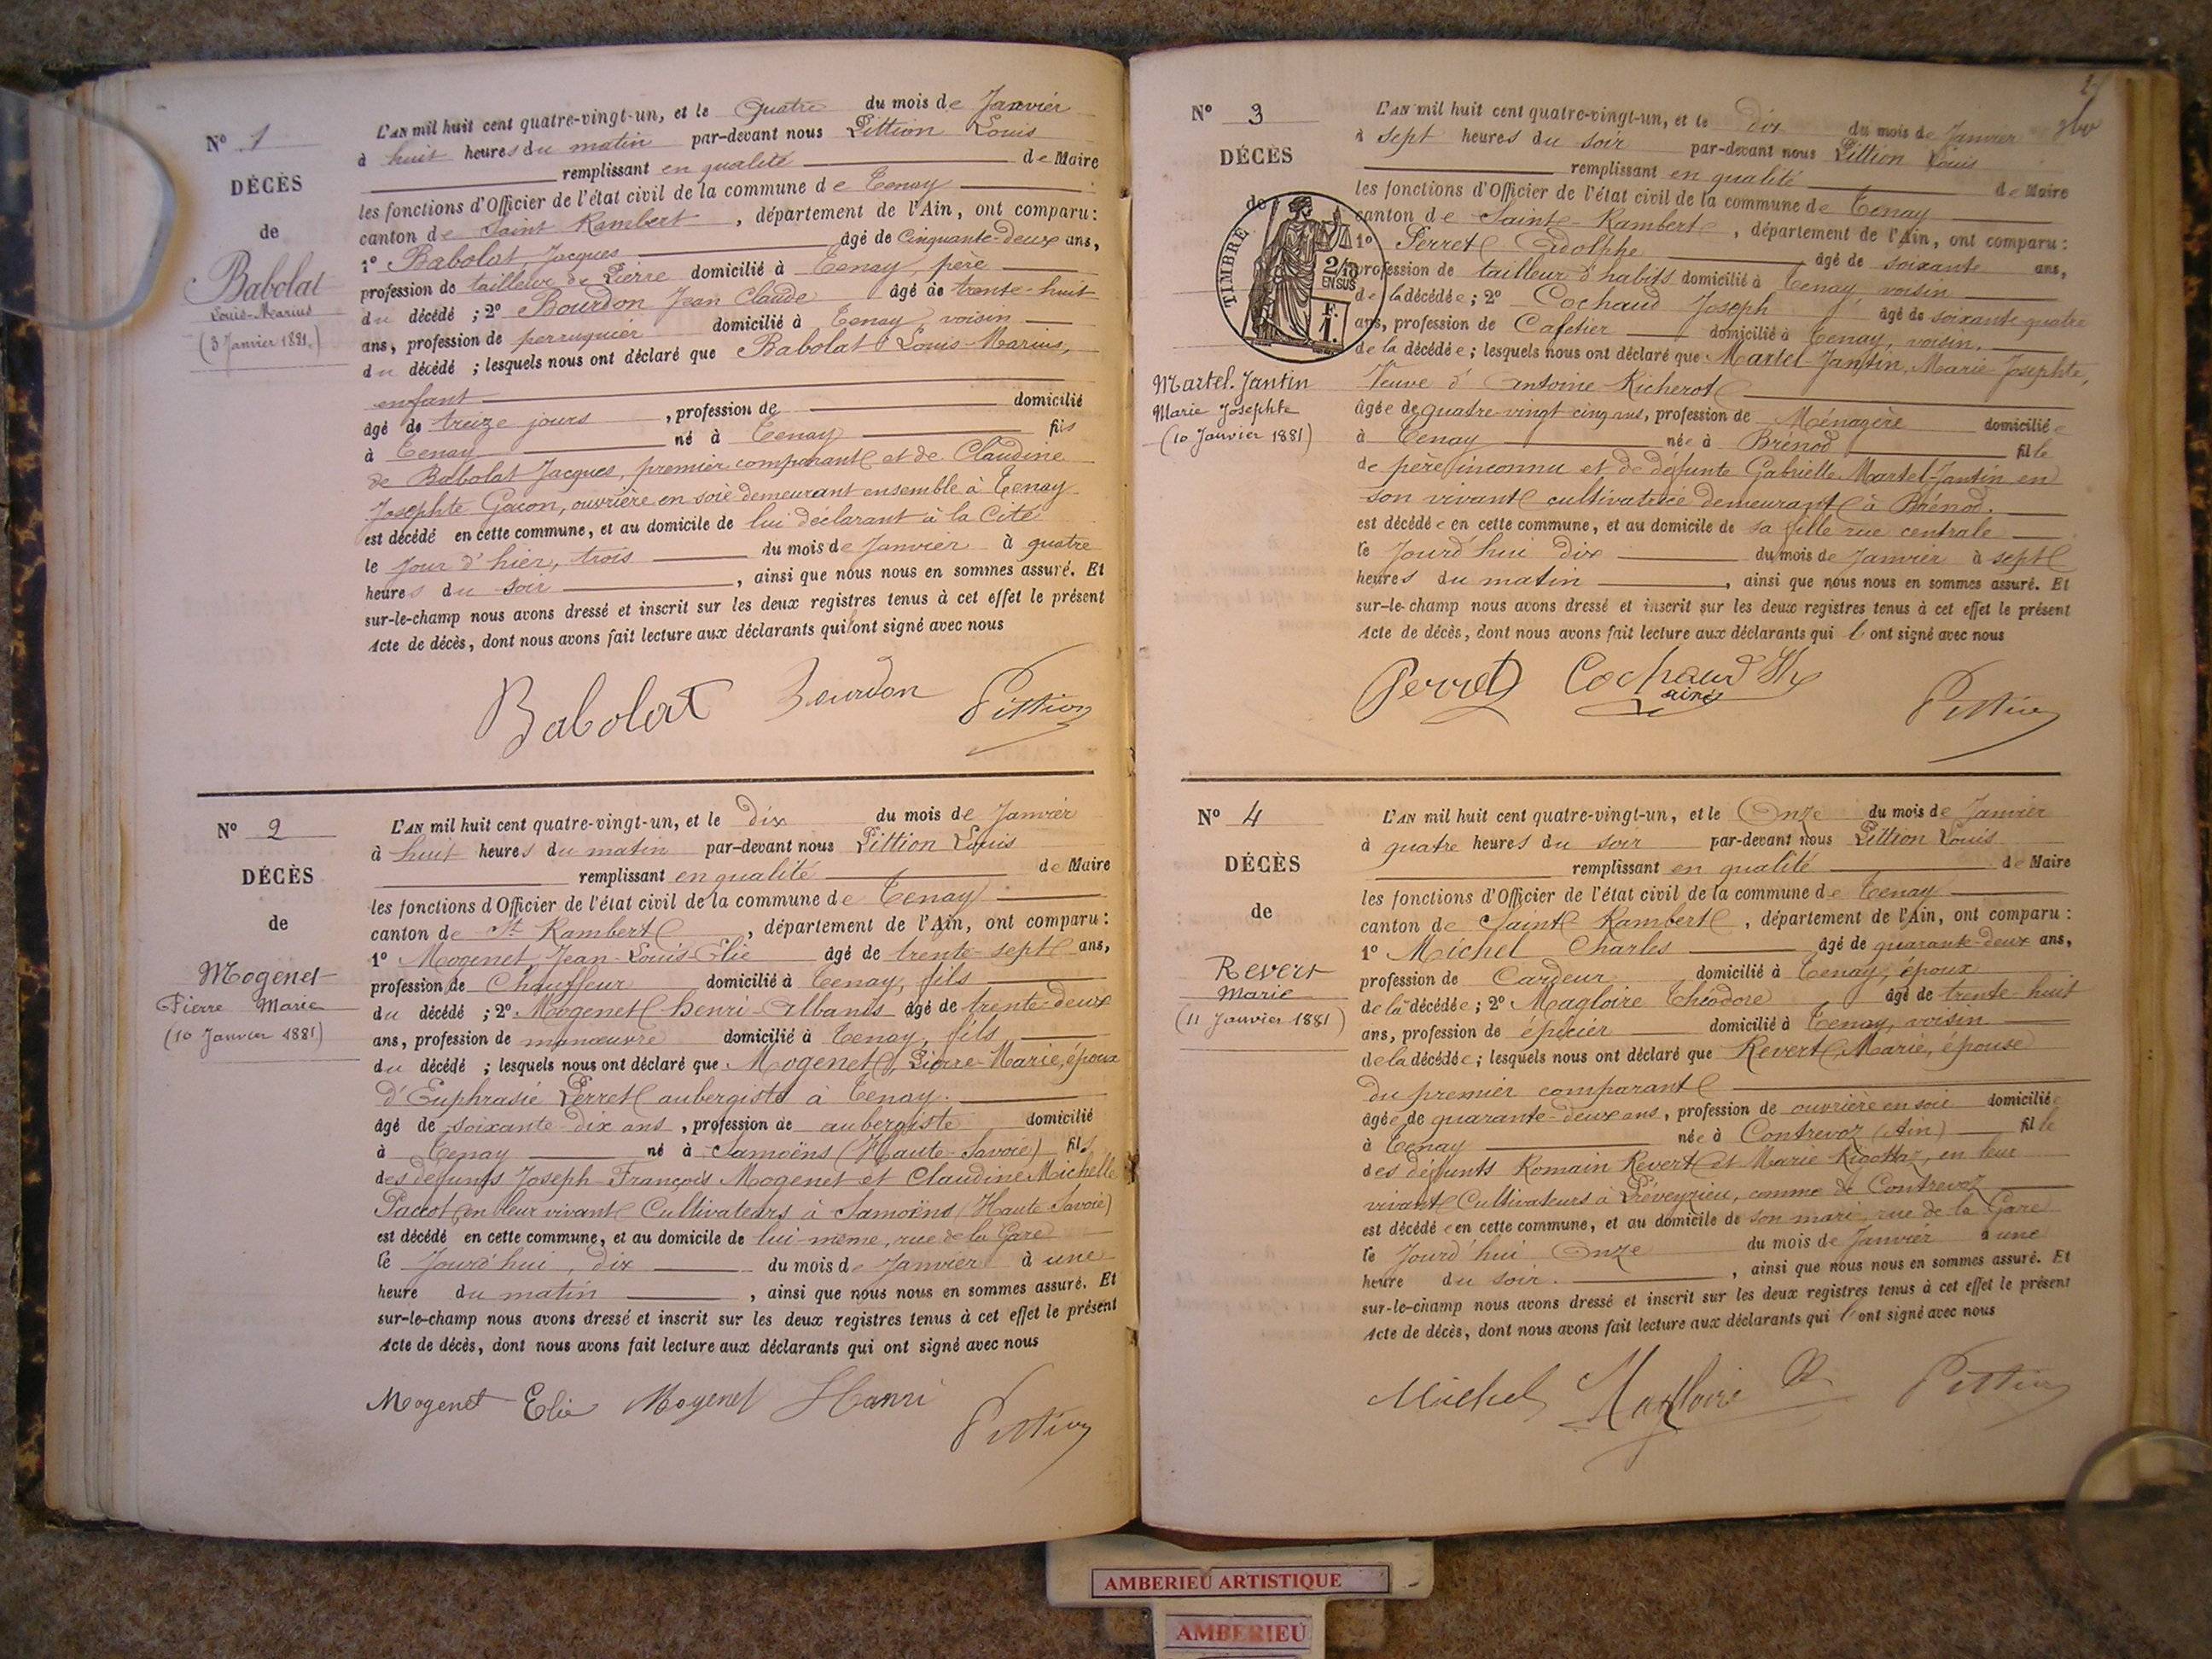 N° 1
DÉCÈS
de
Babolat
Louis-Marius
(3 Janvier 1881.)
L'AN mil huit cent quatre-vingt-un, et le Quatre du mois de Janvier
à huit heures du matin par-devant nous Pittion Louis
remplissant en qualité de Maire
les fonctions d'Officier de l'état civil de la commune de Tenay
canton de Saint Rambert, département de l'Ain, ont comparu :
1° Babolat, Jacques âgé de Cinquante-deux ans,
profession de tailleur de Pierre domicilié à Tenay, père
du décédé ; 2° Bourdon Jean Claude âgé de trente-huit
ans, profession de perruquier domicilié à Tenay, voisin
du décédé ; lesquels nous ont déclaré que Babolat Louis-Marius,
enfant
âgé de treize jours, profession de domicilié
à Tenay né à Tenay fils
de Babolat Jacques, premier comparant et de Claudine
Josephte Gacon, ouvrière en soie demeurant ensemble à Tenay
est décédé en cette commune, et au domicile de lui déclarant à la Cité
le jour d'hier, trois du mois de Janvier à quatre
heures du soir, ainsi que nous nous en sommes assuré. Et
sur-le-champ nous avons dressé et inscrit sur les deux registres tenus à cet effet le présent
Acte de décès, dont nous avons fait lecture aux déclarants qui l'ont signé avec nous
Babolat Bourdon Pittion
N° 2
DÉCÈS
de
Mogenet
Pierre Marie
(10 Janvier 1881)
L'AN mil huit cent quatre-vingt-un, et le dix du mois de Janvier
à huit heures du matin par-devant nous Pittion Louis
remplissant en qualité de Maire
les fonctions d'Officier de l'état civil de la commune de Tenay
canton de St Rambert, département de l'Ain, ont comparu :
1° Mogenet, Jean-Louis-Elie âgé de trente-sept ans,
profession de Chauffeur domicilié à Tenay, fils
du décédé ; 2° Mogenet henri-Albanis âgé de trente-deux
ans, profession de manœuvre domicilié à Tenay, fils
du décédé ; lesquels nous ont déclaré que Mogenet, Pierre-Marie, époux
d'Euphrasie Perret aubergiste à Tenay.
âgé de soixante-dix ans, profession de aubergiste domicilié
à Tenay né à Samoëns (Haute-Savoie) fils
des défunts Joseph-François Mogenet et Claudine Michelle
Paccot, en leur vivant Cultivateurs à Samoëns (Haute Savoie)
est décédé en cette commune, et au domicile de lui-même, rue de la Gare
le Jourd'hui, dix du mois de Janvier à une
heure du matin, ainsi que nous nous en sommes assuré. Et
sur-le-champ nous avons dressé et inscrit sur les deux registres tenus à cet effet le présent
Acte de décès, dont nous avons fait lecture aux déclarants qui ont signé avec nous
Mogenet Elie Mogenet Hanri
Pittion
N° 3
DÉCÈS
de
TIMBRE
2/10
EN SUS
F.
1.
Martel-Jantin
Marie Josephte
(10 Janvier 1881)
L'AN mil huit cent quatre-vingt-un, et le dix du mois de Janvier
à sept heures du soir par-devant nous Pittion Louis
remplissant en qualité de Maire
les fonctions d'Officier de l'état civil de la commune de Tenay
canton de Saint-Rambert, département de l'Ain, ont comparu :
1° Perret Adolphe âgé de soixante ans,
profession de tailleur d'habits domicilié à Tenay voisin
de la décédée ; 2° Cochaud Joseph âgé de soixante quatre
ans, profession de Cafetier domicilié à Tenay, voisin.
de la décédée ; lesquels nous ont déclaré que Martel-Jantin, Marie-Josephte,
Veuve d'Antoine Richerot
âgée de quatre-vingt cinq ans, profession de Ménagère domiciliée
à Tenay née à Brénod fille
de père inconnu et de défunte Gabrielle Martel-Jantin en
son vivant cultivatrice demeurant à Brénod.
est décédée en cette commune, et au domicile de sa fille rue centrale
le Jourd'hui dix du mois de Janvier à sept
heures du matin, ainsi que nous nous en sommes assuré. Et
sur-le-champ nous avons dressé et inscrit sur les deux registres tenus à cet effet le présent
Acte de décès, dont nous avons fait lecture aux déclarants qui l'ont signé avec nous
Perret Cochaud
ainé
Pittion
N° 4
DÉCÈS
de
Revert
Marie
(11 Janvier 1881)
L'AN mil huit cent quatre-vingt-un, et le Onze du mois de Janvier
à quatre heures du soir par-devant nous Pittion Louis
remplissant en qualité de Maire
les fonctions d'Officier de l'état civil de la commune de Tenay
canton de Saint Rambert, département de l'Ain, ont comparu :
1° Michel Charles âgé de quarante-deux ans,
profession de Cardeur domicilié à Tenay, époux
de la décédée ; 2° Magloire Théodore âgé de trente-huit
ans, profession de épicier domicilié à Tenay, voisin
de la décédée ; lesquels nous ont déclaré que Revert Marie, épouse
du premier comparant
âgée de quarante-deux ans, profession de ouvrière en soie domiciliée
à Tenay née à Contrevoz (Ain) fille
des défunts Romain Revert et Marie Rigottaz, en leur
vivant Cultivateurs à Préveyzieu, comme de Contrevoz
est décédée en cette commune, et au domicile de son mari, rue de la Gare
le Jourd'hui Onze du mois de Janvier à une
heure du soir., ainsi que nous nous en sommes assuré. Et
sur-le-champ nous avons dressé et inscrit sur les deux registres tenus à cet effet le présent
Acte de décès, dont nous avons fait lecture aux déclarants qui l'ont signé avec nous
Michel Magloire Pittion
AMBERIEU ARTISTIQUE
AMBERIEU